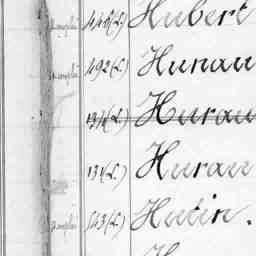 446(L) Hubert
492(L) Hunau
131(L) Hurau
131(L) Hurau
543(L) Hutin.